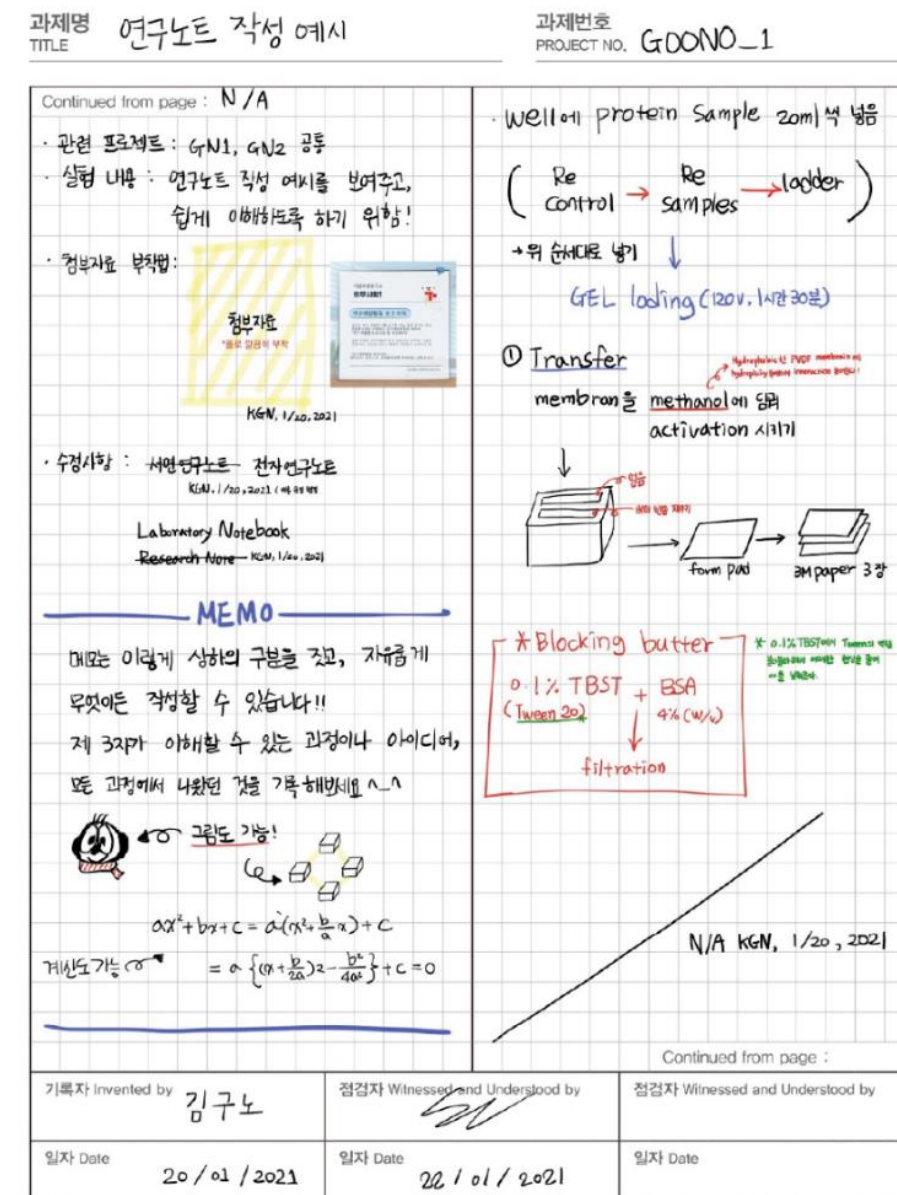 과제명
TITLE
연구노트 작성 예시
과제번호
PROJECT NO.
GOONO_1
Continued from page : N/A
· 관련 프로젝트 : GN1, GN2 공통
· 실험 내용 : 연구노트 작성 예시를 보여주고,
쉽게 이해하도록 하기 위함!
· 첨부자료 부착법 :
첨부자료
*풀로 깔끔히 부착
KGN, 1/20, 2021
· 수정사항 : 서면연구노트 전자연구노트
KGN, 1/20, 2021
Laboratory Notebook
Research Note KGN, 1/20, 2021
MEMO
메모는 이렇게 상하의 구분을 짓고, 자유롭게
무엇이든 작성할 수 있습니다!!
제 3자가 이해할 수 있는 과정이나 아이디어,
모든 과정에서 나왔던 것을 기록해보세요 ^_^
그림도 가능!
ax²+bx+c = a(x²+b/a x)+c
계산도가능
= a {(x+b/2a)2-b²/4a²}+c=0
· well에 protein Sample 20ml씩 넣음
( Re control → Re samples → ladder )
→ 위 순서대로 넣기
GEL loding (120V, 1시간 30분)
① Transfer
membran을 methanol에 담궈
activation 시키기
form pad
3M paper 3장
* Blocking butter
0.1% TBST + BSA
(Tween 20) 4% (w/v)
filtration
N/A KGN, 1/20, 2021
Continued from page :
기록자 Invented by
김구노
점검자 Witnessed and Understood by
점검자 Witnessed and Understood by
일자 Date
20/01/2021
일자 Date
22/01/2021
일자 Date